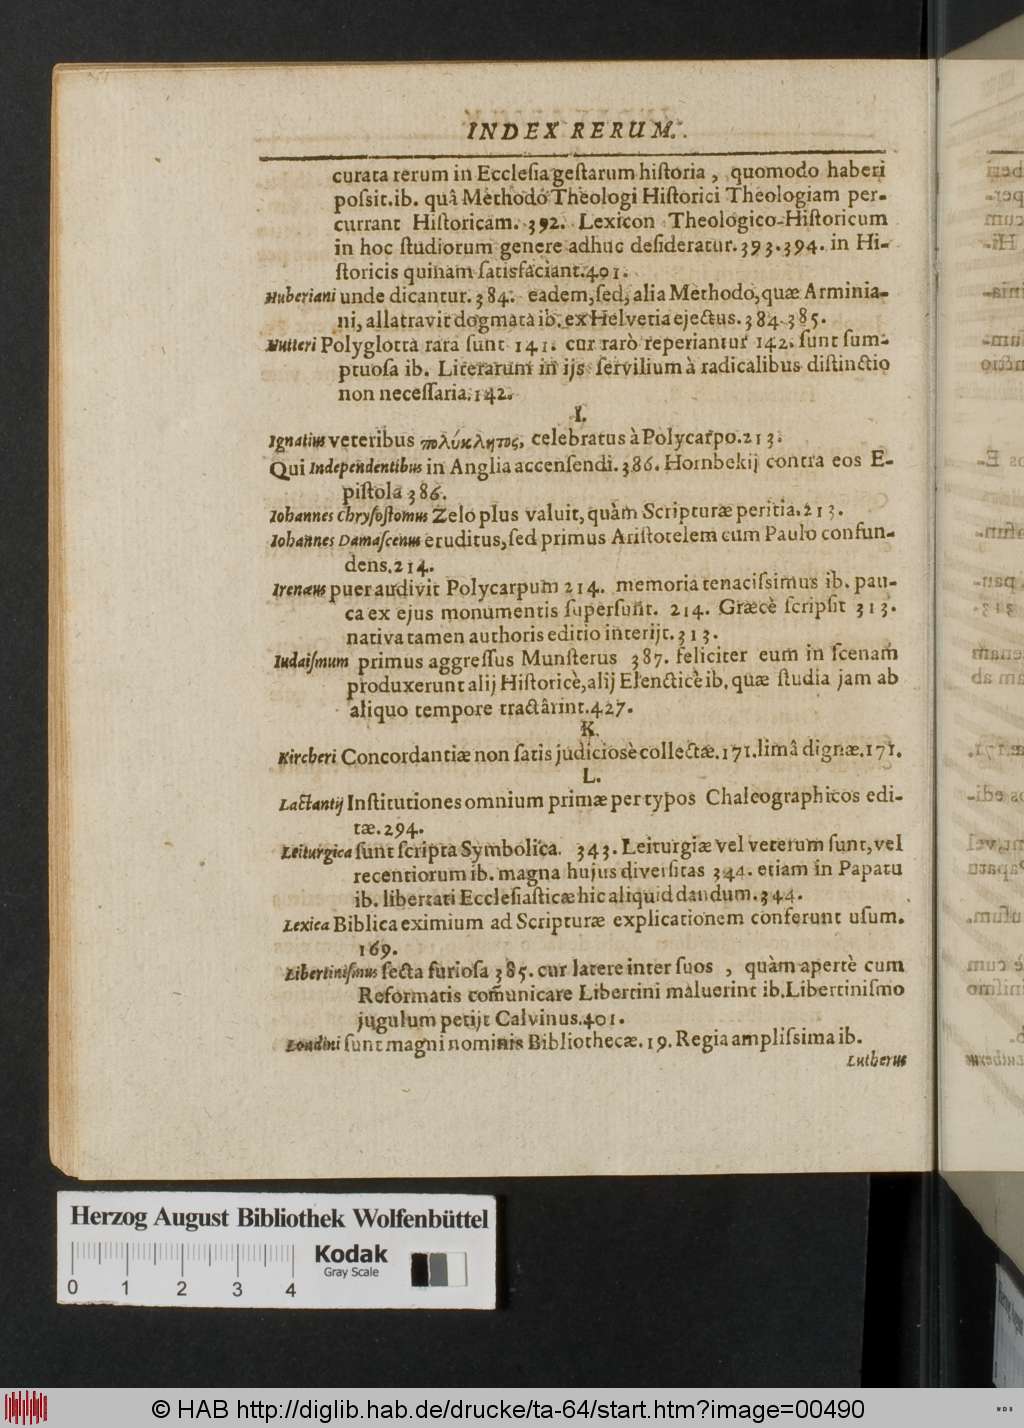 INDEX RERUM.
curata rerum in Eccleſia geſtarum hiſtoria, quomodo haberi
poſsit. ib. quâ Methodo Theologi Hiſtorici Theologiam per-
currant Hiſtoricam. 392. Lexicon Theologico-Hiſtoricum
in hoc ſtudiorum genere adhuc deſideratur. 393. 394. in Hi-
ſtoricis quinam ſatisfaciant. 401.
Huberiani unde dicantur. 384. eadem, ſed, alia Methodo, quæ Arminia-
ni, allatravit dogmata ib. ex Helvetia ejectus. 384. 385.
Hutteri Polyglotta rara ſunt 141. cur rarò reperiantur 142. ſunt ſum-
ptuoſa ib. Literarum in ijs ſervilium à radicalibus diſtinctio
non neceſſaria. 142.
I.
Ignatius veteribus πολύκλητος, celebratus à Polycarpo. 213.
Qui Independentibus in Anglia accenſendi. 386. Hornbekij contra eos E-
piſtola 386.
Iohannes Chryſoſtomus Zelo plus valuit, quàm Scripturæ peritia. 213.
Iohannes Damaſcenus eruditus, ſed primus Ariſtotelem cum Paulo confun-
dens. 214.
Irenæus puer audivit Polycarpum 214. memoria tenaciſsimus ib. pau-
ca ex ejus monumentis ſuperſunt. 214. Græcè ſcripſit 313.
nativa tamen authoris editio interijt. 313.
Iudaiſmum primus aggreſſus Munſterus 387. feliciter eum in ſcenam
produxerunt alij Hiſtoricè, alij Elencticè ib. quæ ſtudia jam ab
aliquo tempore tractârint. 427.
K.
Kircheri Concordantiæ non ſatis judiciosè collectæ. 171. limâ dignæ. 171.
L.
Lactantij Inſtitutiones omnium primæ per typos Chalcographicos edi-
tæ. 294.
Leiturgica ſunt ſcripta Symbolica. 343. Leiturgiæ vel veterum ſunt, vel
recentiorum ib. magna hujus diverſitas 344. etiam in Papatu
ib. libertati Eccleſiaſticæ hic aliquid dandum. 344.
Lexica Biblica eximium ad Scripturæ explicationem conferunt uſum.
169.
Libertiniſmus ſecta furioſa 385. cur latere inter ſuos, quàm apertè cum
Reformatis com̃unicare Libertini maluerint ib. Libertiniſmo
jugulum petijt Calvinus. 401.
Londini ſunt magni nominis Bibliothecæ. 19. Regia ampliſsima ib.
Lutherus
Herzog August Bibliothek Wolfenbüttel
Kodak
Gray Scale
0 1 2 3 4
© HAB http://diglib.hab.de/drucke/ta-64/start.htm?image=00490